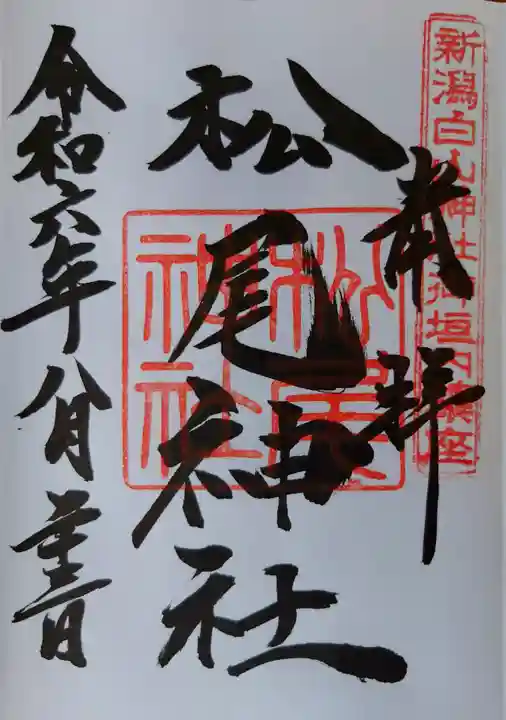 新潟白山神社御垣内鎮座
奉拝
松尾神社
松尾神社
令和六年八月